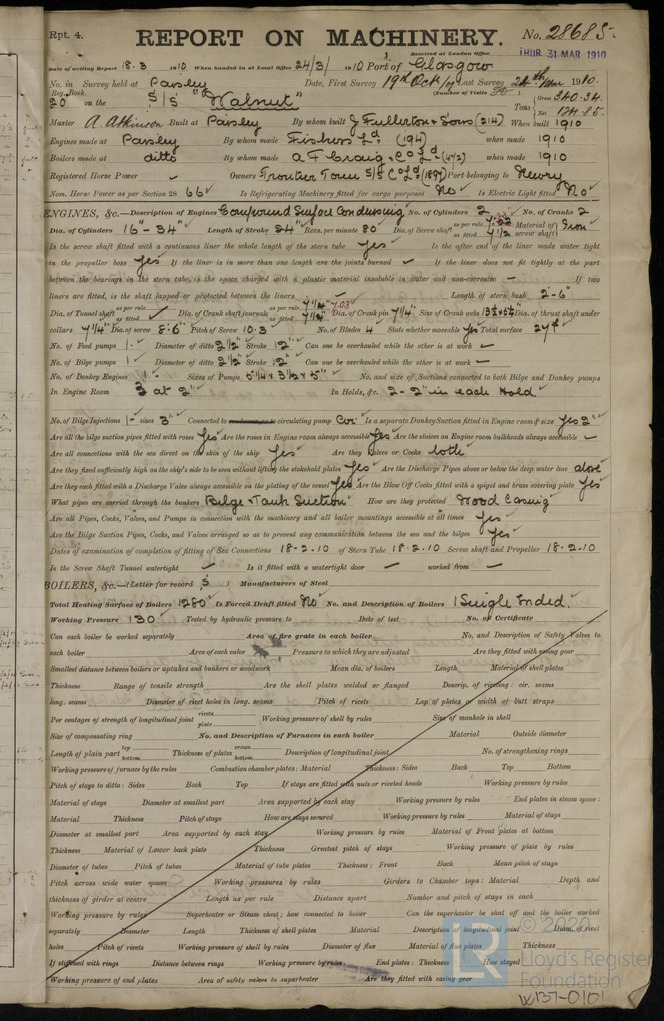 Rpt. 4. REPORT ON MACHINERY. No. 28685.
Received at London Office THUR. 31 MAR 1910
Date of writing Report 18.3 1910 When handed in at Local Office 24/3/ 1910 Port of Glasgow
No. in Survey held at Paisley Date, First Survey 19th Oct/09 Last Survey 24th Mar 1910.
Reg. Book. (Number of Visits 30)
20 on the S/S "Walnut" Tons Gross 340.34. Net 124.85.
Master A. Atkinson Built at Paisley By whom built J Fullerton & Sons (214) When built 1910
Engines made at Paisley By whom made Fishers Ld (194) when made 1910
Boilers made at ditto By whom made A F Craig & Co Ld (442) when made 1910
Registered Horse Power Owners Frontier Town S/S Co Ld (1897) Port belonging to Newry
Nom. Horse Power as per Section 28 66 Is Refrigerating Machinery fitted for cargo purposes No Is Electric Light fitted No
ENGINES, &c.—Description of Engines Compound Surface Condensing No. of Cylinders 2 No. of Cranks 2
Dia. of Cylinders 16"-34" Length of Stroke 24" Revs. per minute 80 Dia. of Screw shaft as per rule 7.52 as fitted 7 1/2 Material of screw shaft Iron
Is the screw shaft fitted with a continuous liner the whole length of the stern tube Yes Is the after end of the liner made water tight
in the propeller boss Yes If the liner is in more than one length are the joints burned If the liner does not fit tightly at the part
between the bearings in the stern tube, is the space charged with a plastic material insoluble in water and non-corrosive If two
liners are fitted, is the shaft lapped or protected between the liners Length of stern bush 2'-6"
Dia. of Tunnel shaft as per rule as fitted Dia. of Crank shaft journals as per rule 7 1/4" 7.03 as fitted 7 1/4" Dia. of Crank pin 7 1/4" Size of Crank webs Dia. of thrust shaft under
collars 7 1/4" Dia. of screw 8'-6" Pitch of Screw 10.3 No. of Blades 4 State whether moveable Yes Total surface 27 ft
No. of Feed pumps 1 Diameter of ditto 2 1/2 Stroke 12" Can one be overhauled while the other is at work
No. of Bilge pumps 1 Diameter of ditto 2 1/2 Stroke 12" Can one be overhauled while the other is at work
No. of Donkey Engines 1 Sizes of Pumps 5 1/4 x 3 1/2 x 5" No. and size of Suctions connected to both Bilge and Donkey pumps
In Engine Room 3 at 2" In Holds, &c. 2-2" in each Hold.
No. of Bilge Injections 1 sizes 3" Connected to circulating pump Cir Is a separate Donkey Suction fitted in Engine room & size Yes 2"
Are all the bilge suction pipes fitted with roses Yes Are the roses in Engine room always accessible Yes Are the sluices on Engine room bulkheads always accessible
Are all connections with the sea direct on the skin of the ship Yes Are they Valves or Cocks both
Are they fixed sufficiently high on the ship's side to be seen without lifting the stokehold plates Yes Are the Discharge Pipes above or below the deep water line above
Are they each fitted with a Discharge Valve always accessible on the plating of the vessel Yes Are the Blow Off Cocks fitted with a spigot and brass covering plate Yes
What pipes are carried through the bunkers Bilge & Tank Suction How are they protected Wood Casing
Are all Pipes, Cocks, Valves, and Pumps in connection with the machinery and all boiler mountings accessible at all times Yes
Are the Bilge Suction Pipes, Cocks, and Valves arranged so as to prevent any communication between the sea and the bilges Yes
Dates of examination of completion of fitting of Sea Connections 18-2-10 of Stern Tube 18.2.10 Screw shaft and Propeller 18.2.10
Is the Screw Shaft Tunnel watertight Is it fitted with a watertight door worked from
BOILERS, &c.—(Letter for record S) Manufacturers of Steel
Total Heating Surface of Boilers 1280 Is Forced Draft fitted No No. and Description of Boilers 1 Single Ended.
Working Pressure 130 Tested by hydraulic pressure to Date of test No. of Certificate
Can each boiler be worked separately Area of fire grate in each boiler No. and Description of Safety Valves to
each boiler Area of each valve Pressure to which they are adjusted Are they fitted with easing gear
Smallest distance between boilers or uptakes and bunkers or woodwork Mean dia. of boilers Length Material of shell plates
Thickness Range of tensile strength Are the shell plates welded or flanged Descrip. of riveting: cir. seams
long. seams Diameter of rivet holes in long. seams Pitch of rivets Lap of plates or width of butt straps
Per centages of strength of longitudinal joint rivets plate Working pressure of shell by rules Size of manhole in shell
Size of compensating ring No. and Description of Furnaces in each boiler Material Outside diameter
Length of plain part top bottom Thickness of plates crown bottom Description of longitudinal joint No. of strengthening rings
Working pressure of furnace by the rules Combustion chamber plates: Material Thickness: Sides Back Top Bottom
Pitch of stays to ditto: Sides Back Top If stays are fitted with nuts or riveted heads Working pressure by rules
Material of stays Diameter at smallest part Area supported by each stay Working pressure by rules End plates in steam space:
Material Thickness Pitch of stays How are stays secured Working pressure by rules Material of stays
Diameter at smallest part Area supported by each stay Working pressure by rules Material of Front plates at bottom
Thickness Material of Lower back plate Thickness Greatest pitch of stays Working pressure of plate by rules
Diameter of tubes Pitch of tubes Material of tube plates Thickness: Front Back Mean pitch of stays
Pitch across wide water spaces Working pressures by rules Girders to Chamber tops: Material Depth and
thickness of girder at centre Length as per rule Distance apart Number and pitch of stays in each
Working pressure by rules Superheater or Steam chest; how connected to boiler Can the superheater be shut off and the boiler worked
separately Diameter Length Thickness of shell plates Material Description of longitudinal joint Diam. of rivet
holes Pitch of rivets Working pressure of shell by rules Diameter of flue Material of flue plates Thickness
If stiffened with rings Distance between rings Working pressure by rules End plates: Thickness How stayed
Working pressure of end plates Area of safety valves to superheater Are they fitted with easing gear
© 2020
LR Lloyd's Register
Foundation
W137-0101